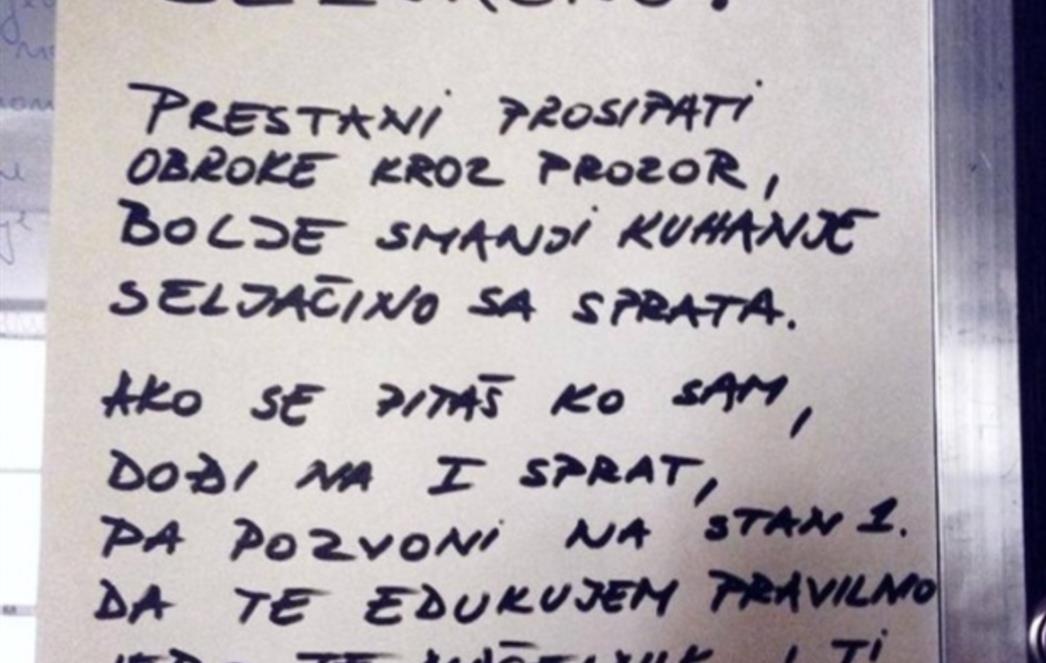 PRESTANi PROSIPATi
OBROKE KROZ PROZOR,
BOLJE SMANJi KUHANJE
SELJAČINO SA SPRATA.
AKO SE PITAŠ KO SAM,
DOĐI NA I SPRAT,
PA POZVONi NA STAN 1.
DA TE EDUKUJEM PRAVILNO